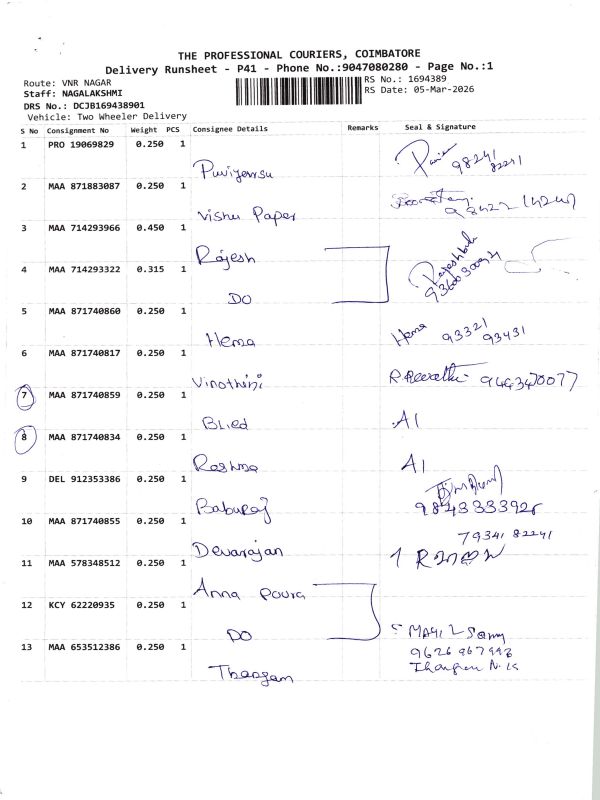 THE PROFESSIONAL COURIERS, COIMBATORE
Delivery Runsheet - P41 - Phone No.:9047080280 - Page No.:1
Route: VNR NAGAR
RS No.: 1694389
Staff: NAGALAKSHMI
RS Date: 05-Mar-2026
DRS No.: DCJB169438901
Vehicle: Two Wheeler Delivery
S No Consignment No Weight PCS Consignee Details Remarks Seal & Signature
1 PRO 19069829 0.250 1
98241 82241
2 MAA 871883087 0.250 1
Vishu Paper
3 MAA 714293966 0.450 1
Rajesh
4 MAA 714293322 0.315 1
DO
5 MAA 871740860 0.250 1
Hema Hema 93321 93431
6 MAA 871740817 0.250 1
Vinothini R.Revathi
7 MAA 871740859 0.250 1
Blied A1
8 MAA 871740834 0.250 1
Reshma A1
9 DEL 912353386 0.250 1
Baburaj
10 MAA 871740855 0.250 1
Devarajan 79341 82241
11 MAA 578348512 0.250 1
Anna Poura
12 KCY 62220935 0.250 1
DO
13 MAA 653512386 0.250 1
Thangam